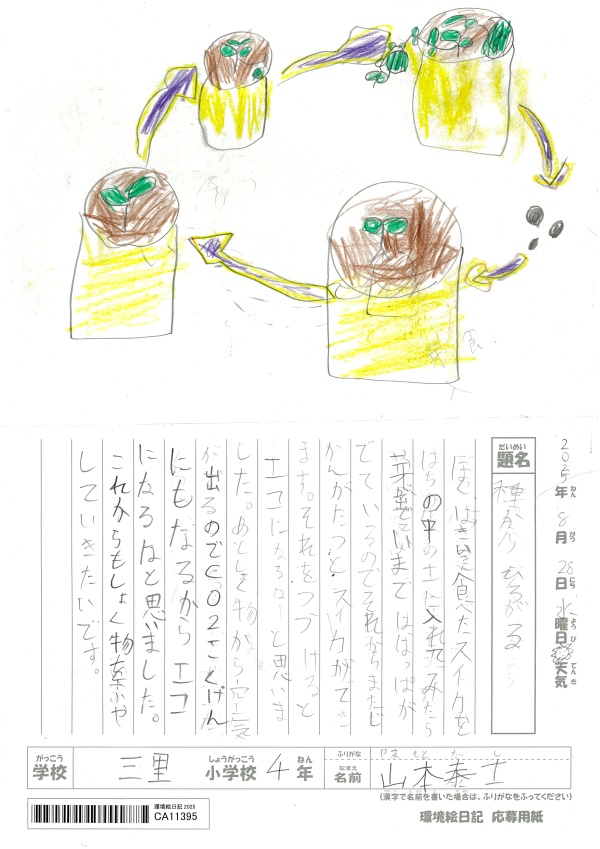 2025年8月28日水曜日天気
題名
種からひろがる
ぼくはきのう食べたスイカを
はちの中の土に入れてみたら
芽がでていまで ははっぱが
でているのでそれからまたじ
かんがたつと スイカができ
ます。それをつづけると
エコになるなーと思いま
した。あとしょく物から空気
が出るのでCO2さくげん
にもなるからエコ
になるなと思いました。
これからもしょく物を木ふや
していきたいです。
がっこう 学校 三里 しょうがっこう 小学校 4 ねん 年
ふりがな やま もと
なまえ 名前 山本泰士
(漢字で名前を書いた場合は、ふりがなをふってください)
環境絵日記 2025
CA11395
環境絵日記 応募用紙